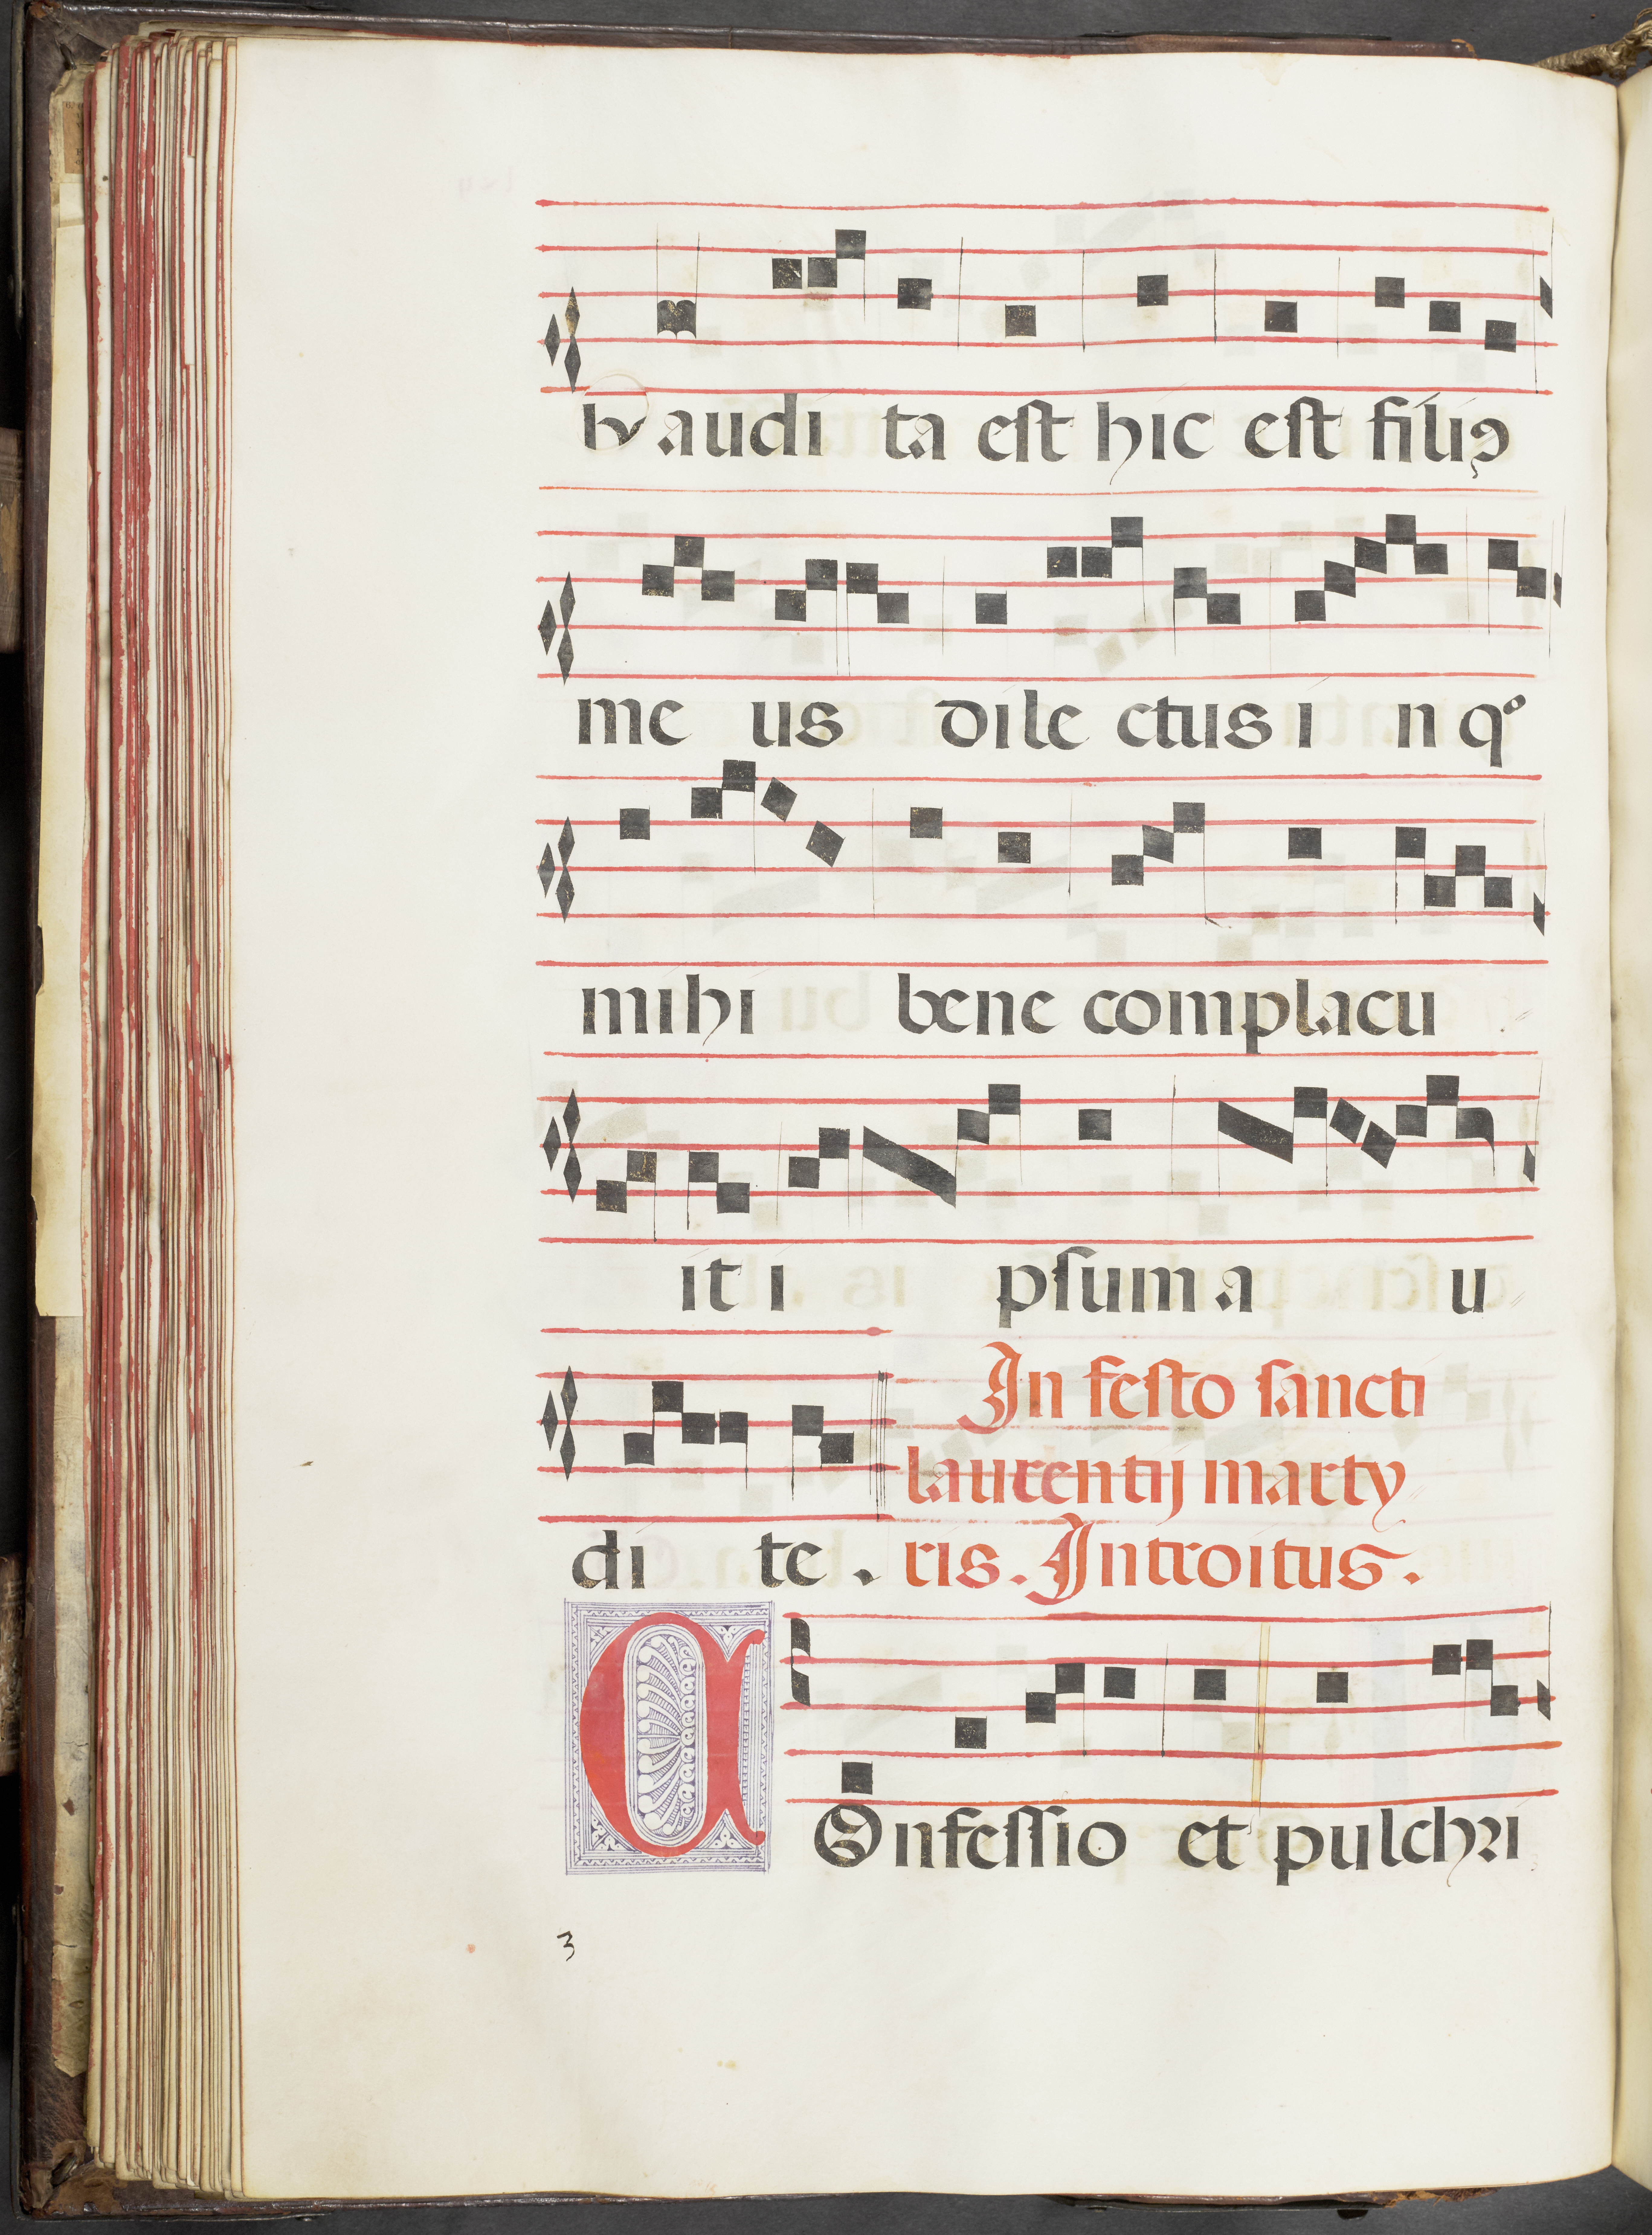 bx audi ta est hic est filiꝰ
me us dile ctus i n qº
mihi bene complacu
it i psum a u
In festo sancti
laurentij marty
di te . ris. Introitus.
COnfessio et pulchri
3